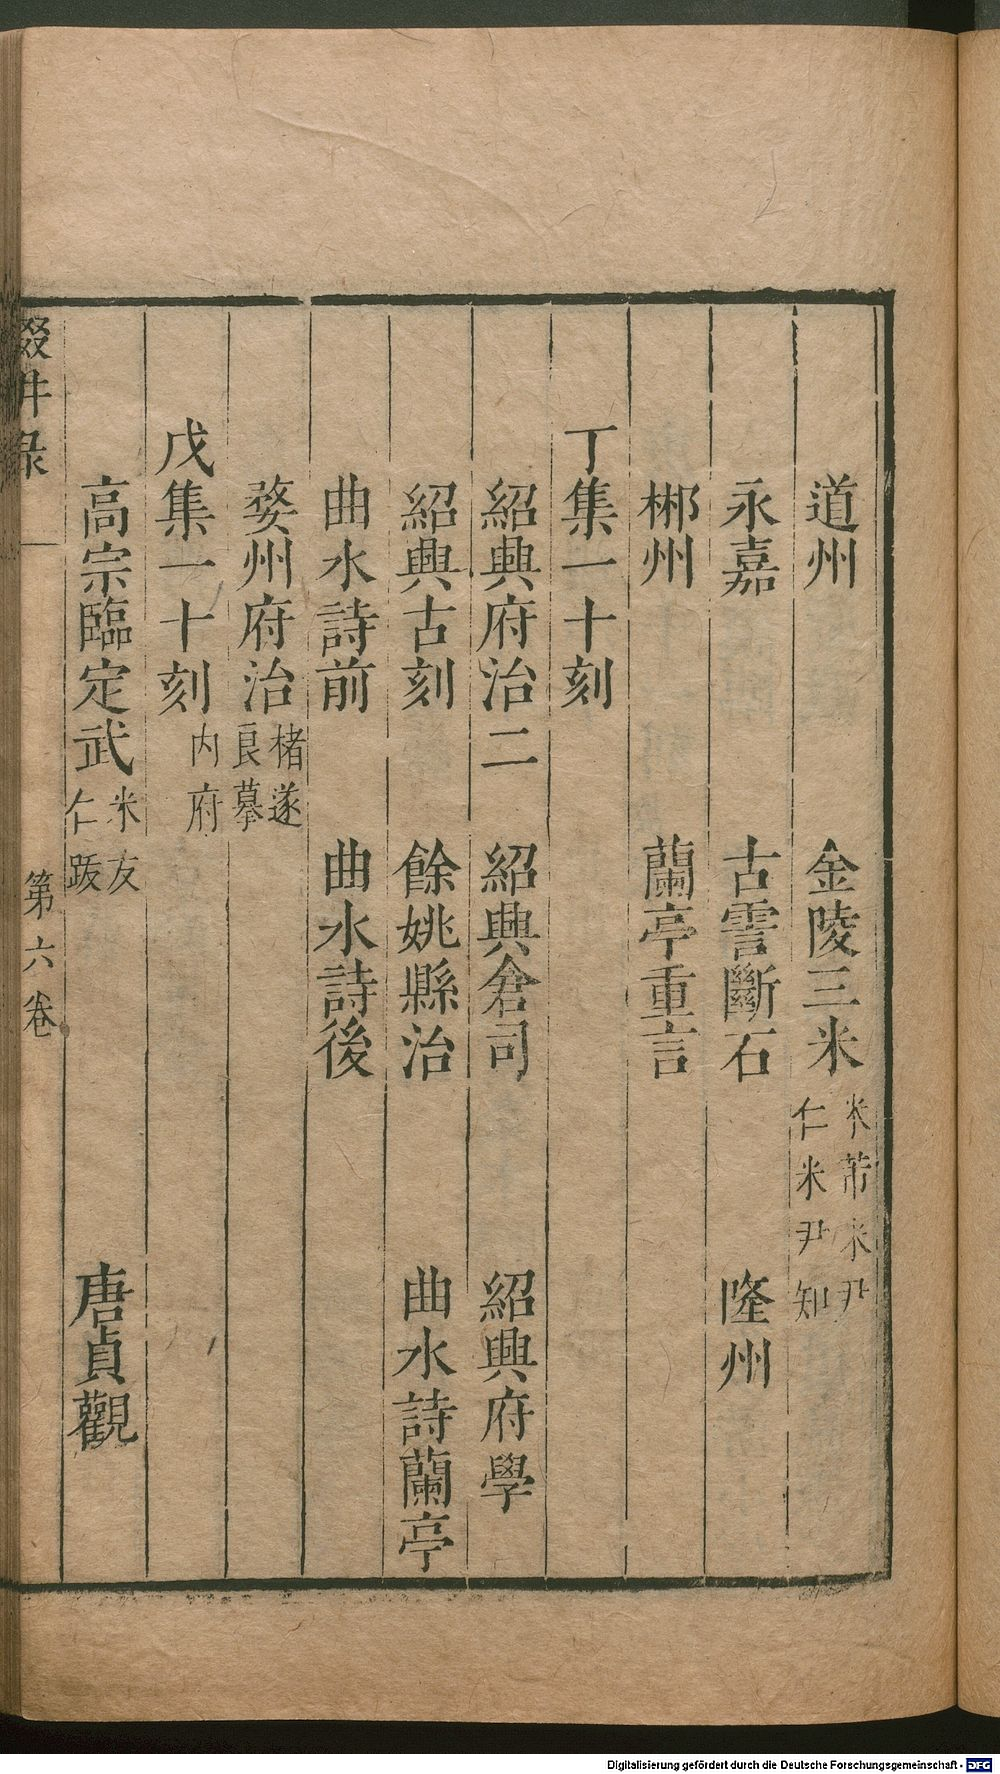 道州　金陵三米　米芾米尹
仁米尹知
永嘉　古雲斷石　隆州
郴州　蘭亭重言
丁集一十刻
紹興府治二　紹興倉司　紹興府學
紹興古刻　餘姚縣治　曲水詩蘭亭
曲水詩前　曲水詩後
婺州府治　楮遂
良摹
戊集一十刻　内府
高宗臨定武　米友
仁跋　唐貞觀
輟畊录　第六卷
Digitalisierung gefördert durch die Deutsche Forschungsgemeinschaft - DFG